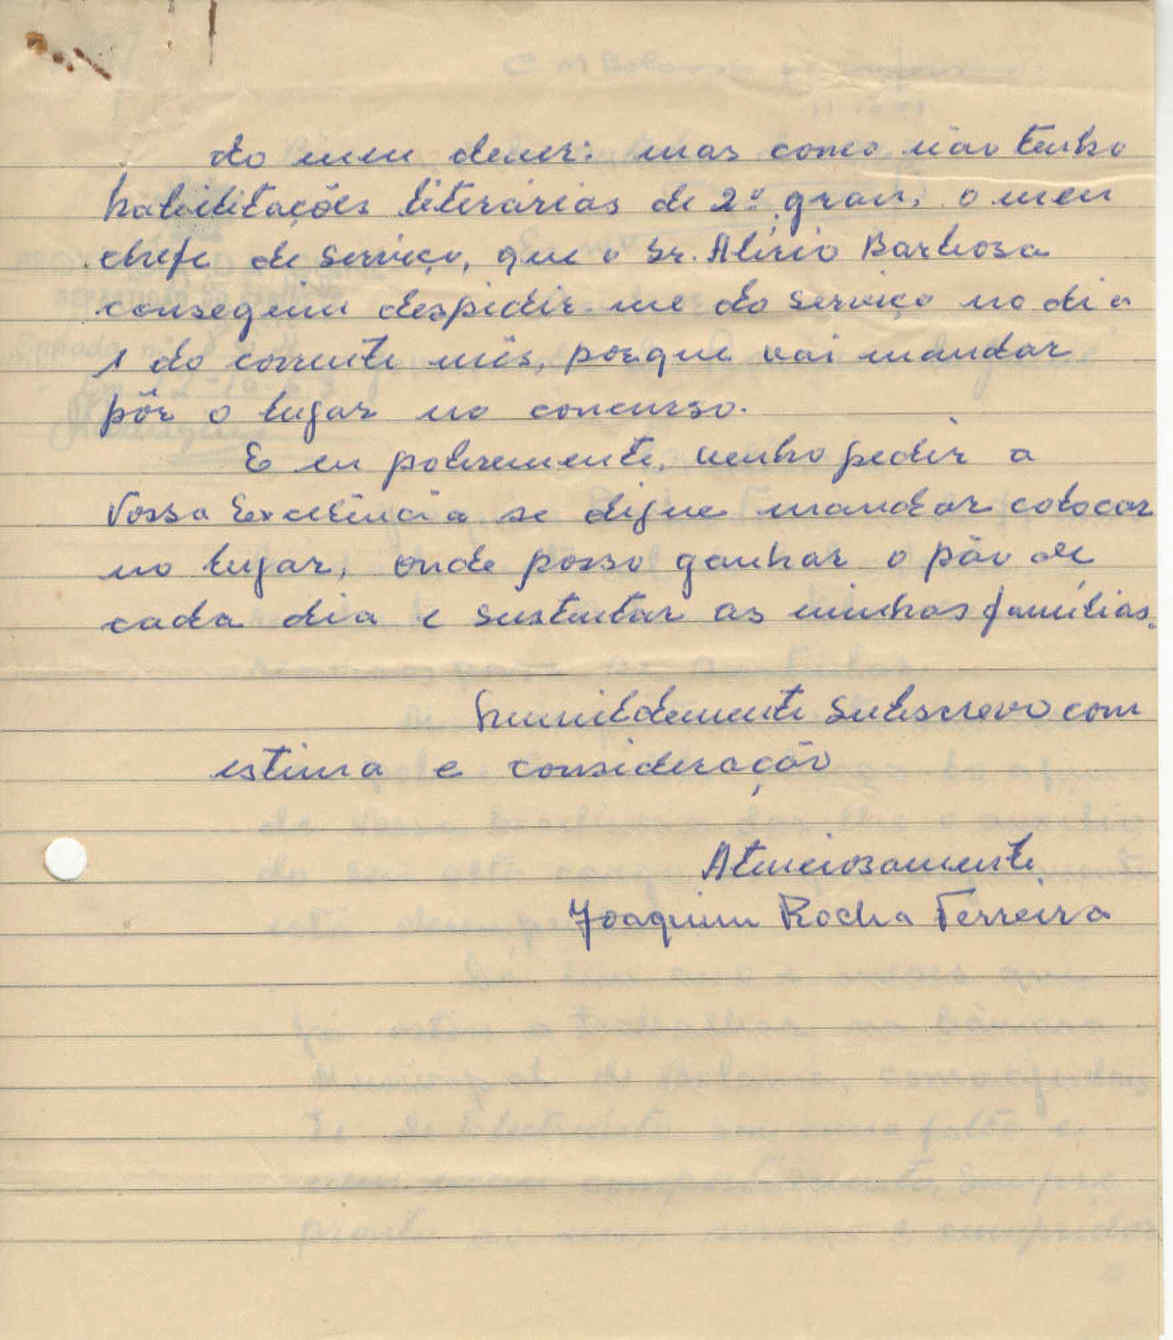 do meu dever: mas como não tenho
habilitações literárias de 2º grau, o meu
chefe de serviço, que o Sr. Alirio Barbosa
conseguiu despidir-me do serviço no dia
1 do corrente mês, porque vai mandar
pôr o lugar no concurso.
E eu pobremente, venho pedir a
Vossa Excelência se digne mandar colocar
no lugar, onde posso ganhar o pão de
cada dia e sustentar as minhas famílias.
humildemente subscrevo com
estima e consideração
Atenciosamente
Joaquim Rocha Ferreira